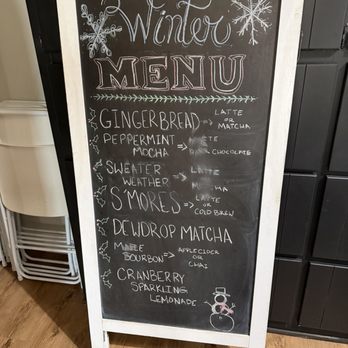 Winter
MENU
GINGERBREAD → LATTE
OR
MATCHA
PEPPERMINT
MOCHA
CHOCOLATE
SWEATER
WEATHER → LATTE
S'MORES → LATTE
OR
COLD BREW
DEWDROP MATCHA
BOURBON → APPLECIDER
OR
CHAI
CRANBERRY
SPARKLING
LEMONADE